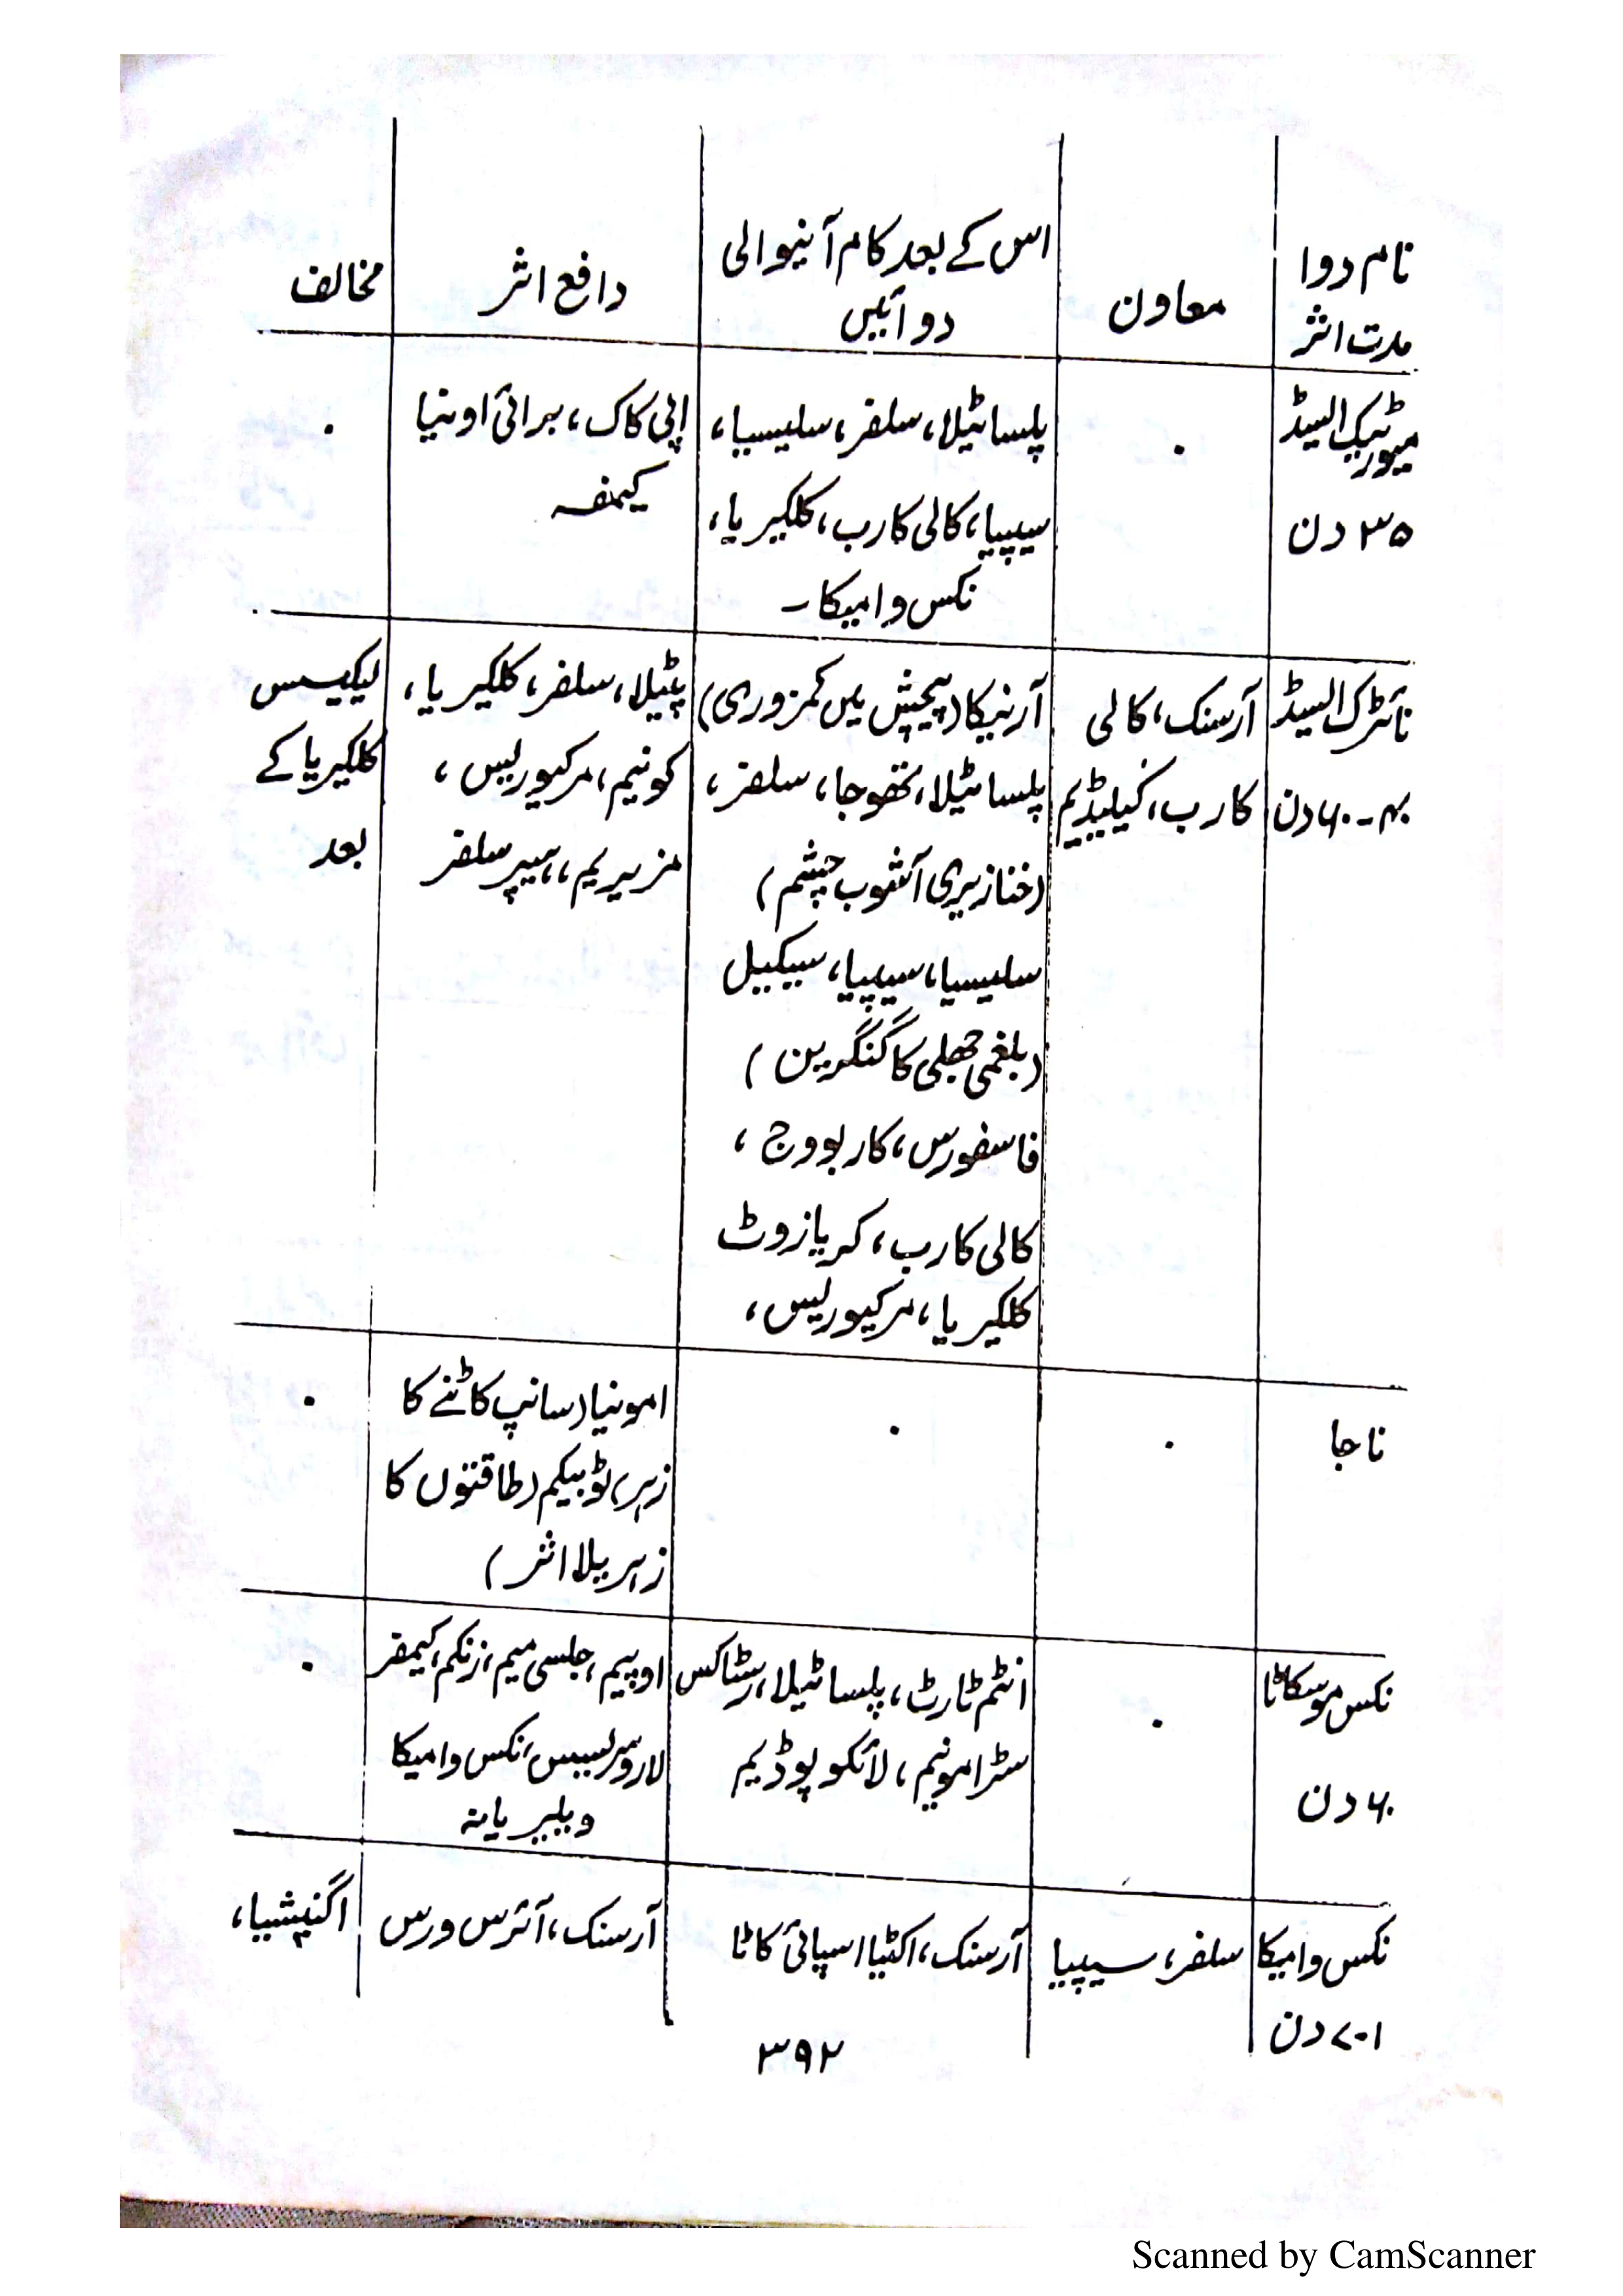 نام دوا
مدت اثر
معاون
اس کے بعد کام آنیوالی
دوائیں
دافع اثر
مخالف
میورٹیک ایسڈ
۳۵ دن
۰
پلساٹیلا، سلفر، سلیسیا،
سیپیا، کالی کارب، کلکیریا،
نکس وامیکا ـ
اپی کاک، برائی اونیا
کیمفر
۰
نائٹرک ایسڈ
۴۰ ـ ۶۰ دن
آرسنک، کالی
کارب، کیلیڈیم
آرنیکا (پیچش میں کمزوری)
پلساٹیلا، تھوجا، سلفر،
(خنازیری آشوب چشم)
سلیسیا، سیپیا، سیکیل
(بلغمی جھلی کا گنگرین)
فاسفورس، کاربووج،
کالی کارب، کریازوٹ
کلکیریا، مرکیوریس،
پٹیلا، سلفر، کلکیریا،
کونیم، مرکیوریس،
مزیریم، ہیپر سلفر
لیکیسس
کلکیریا کے
بعد
ناجا
۰
۰
امونیا (سانپ کاٹنے کا
زہر) ٹوبیکم (طاقتوں کا
زہریلا اثر)
۰
نکس موسکاٹا
۶۰ دن
۰
انٹم ٹارٹ، پلساٹیلا، رسٹاکس
سٹرامونیم، لائکوپوڈیم
اوپیم، جلسی میم، زنکم، کیمفر
لاروسریسس، نکس وامیکا
ویلیریانہ
۰
نکس وامیکا
۱-۷ دن
سلفر، سیپیا
آرسنک، اکٹیا اسپائی کاٹا
آرسنک، آئرس ورس
اگنیشیا،
۳۹۲
Scanned by CamScanner